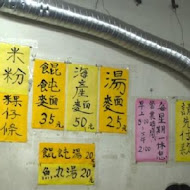 米粉
粿仔條
餛飩麵
35元
海產麵
50元
湯麵
25元
每星期一休息
餛飩湯20
魚丸湯20